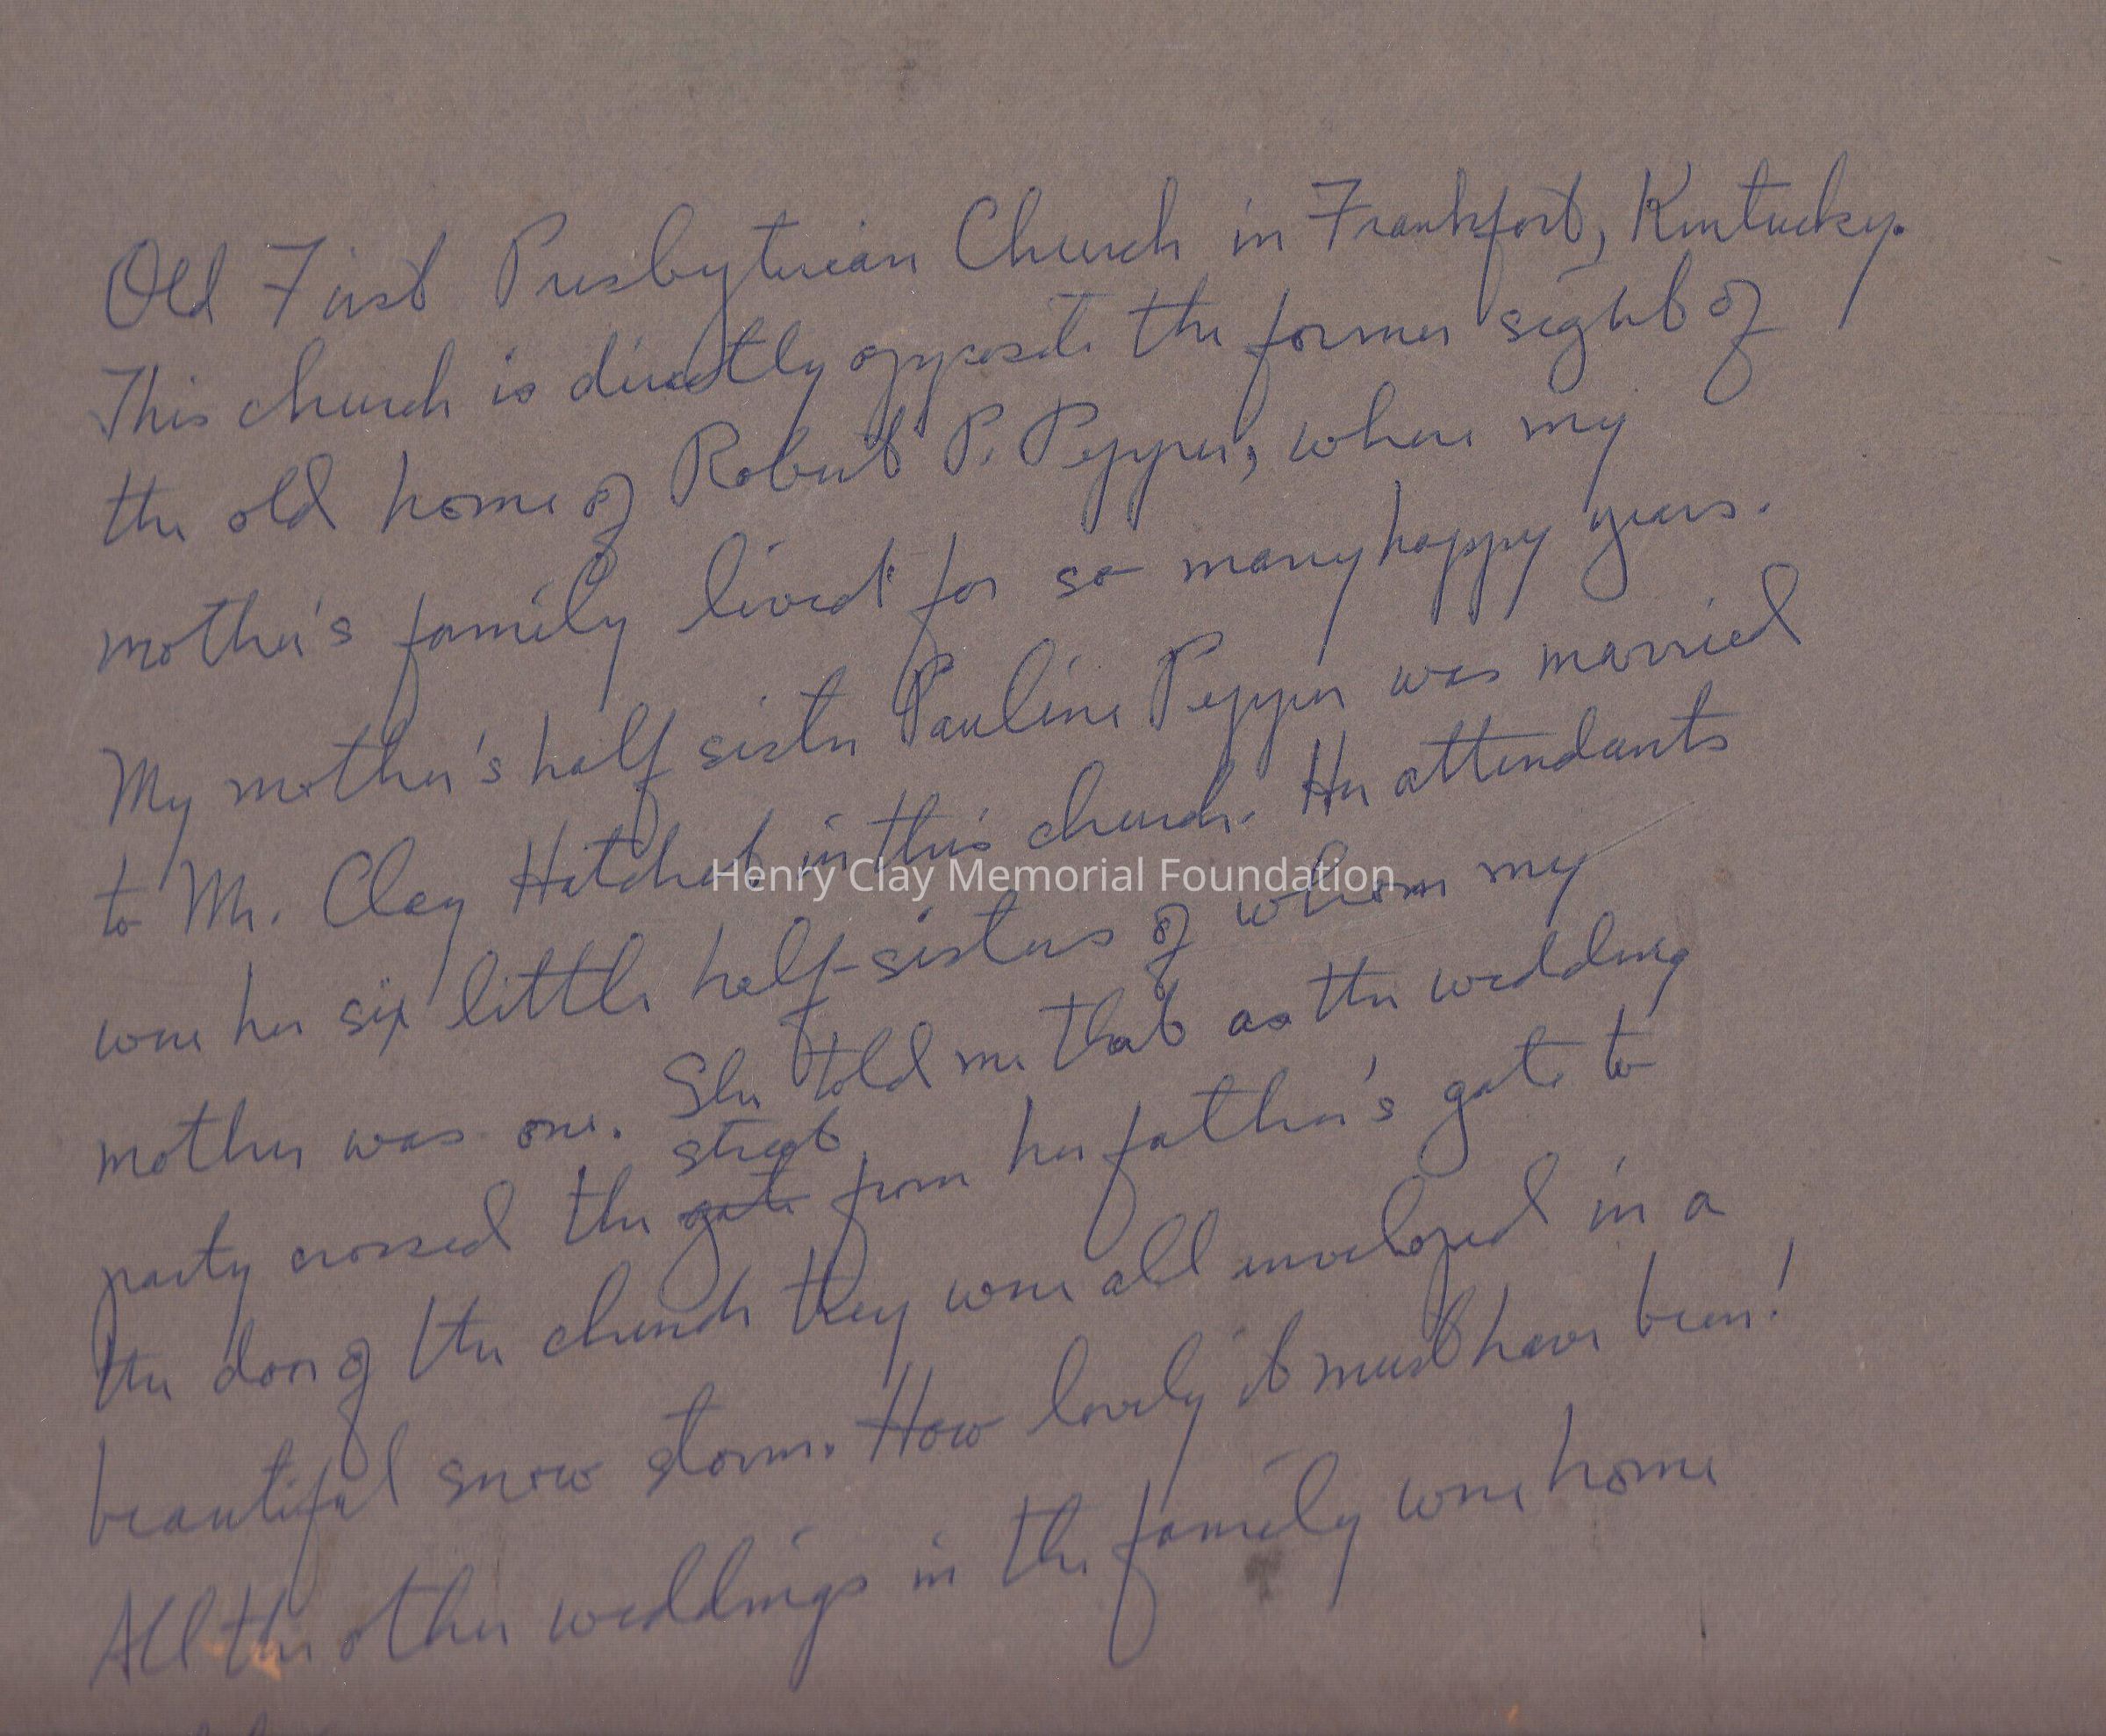 Old First Presbyterian Church in Frankfort, Kentucky.
This church is directly opposite the former sight of
the old home of Robert P. Pepper, where my
mother's family lived for so many happy years.
My mother's half sister Pauline Pepper was married
to Mr. Clay Hatchet in this church. Her attendants
Henry Clay Memorial Foundation
were her six little half-sisters of whom my
mother was one. She told me that as the wedding
street
party crossed the gate from her father's gate to
the door of the church they were all enveloped in a
beautiful snow storm. How lovely it must have been!
All the other weddings in the family were home